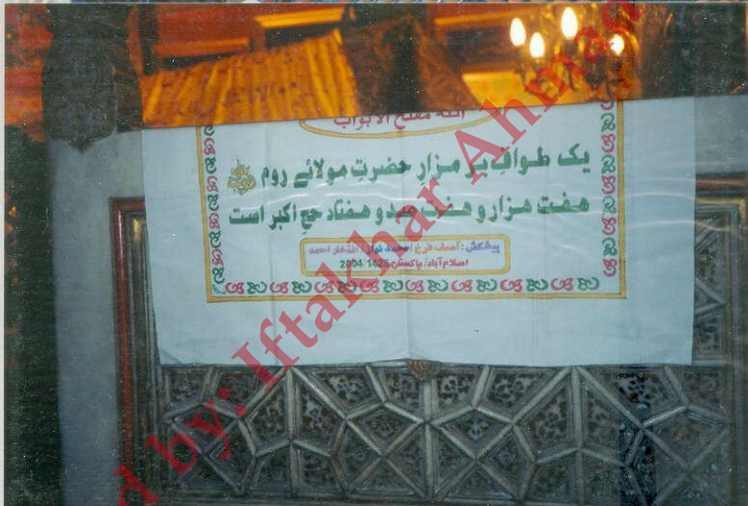 اللہ مفتح الابواب
یک طواف بر مزار حضرت مولائے روم
ہفت ہزار و ہفت صد و ہفتاد حج اکبر است
پیشکش : آصف فرخ / محمد نواز / افتخار احمد
اسلام آباد / پاکستان 1425 / 2004
d by: Iftakhar Ahmad